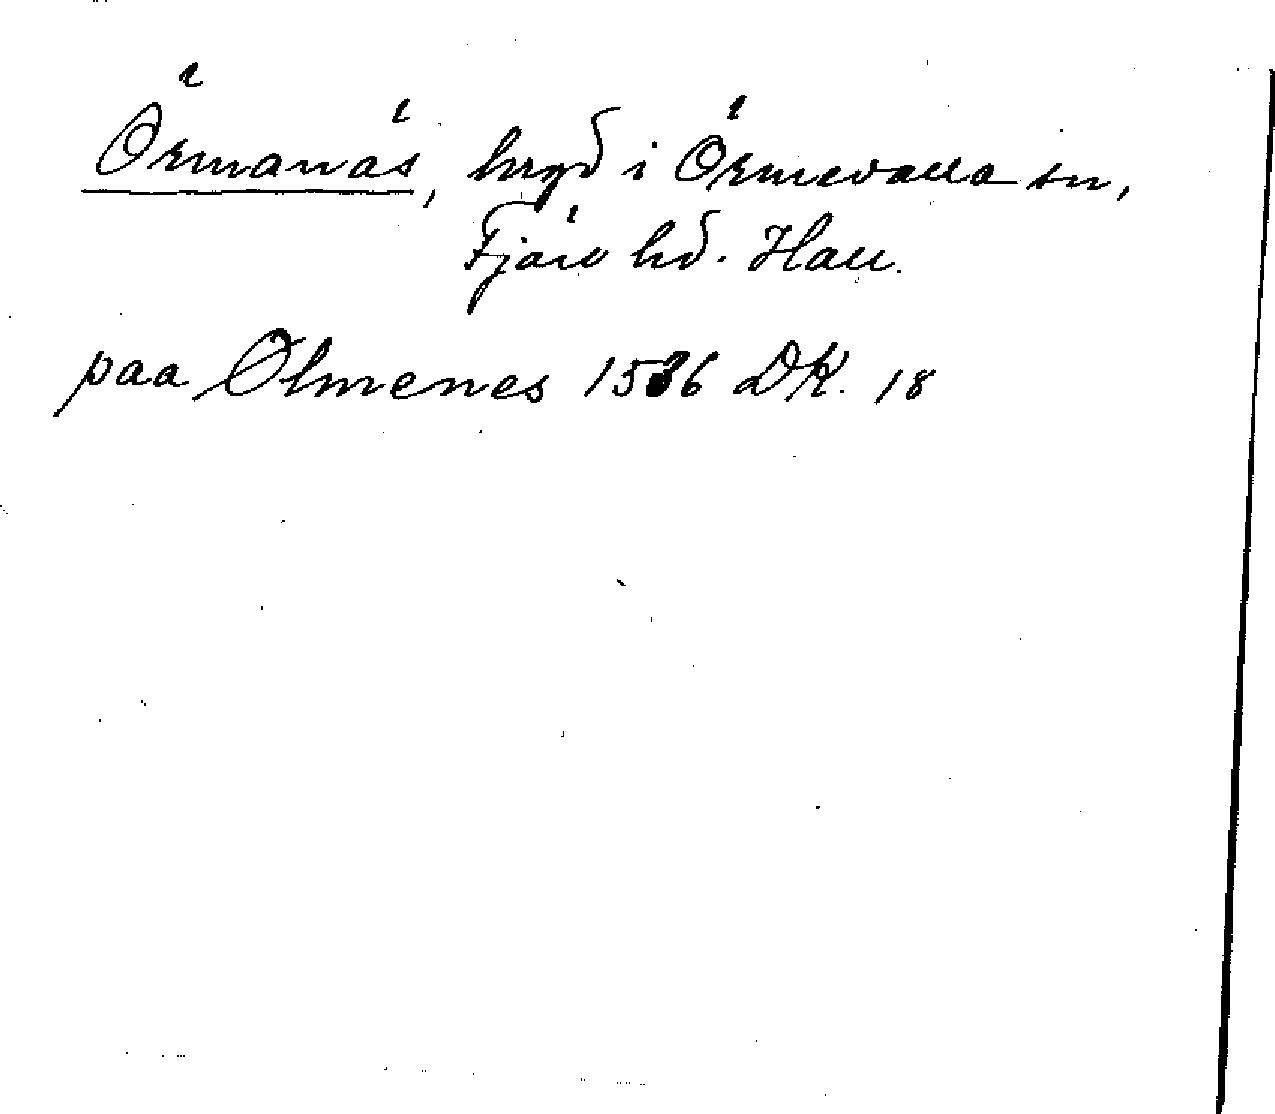 Örmanäs, bygd i Örmevalla sn,
Fjäre hd. Hall.
paa Olmenes 1536 DK. 18